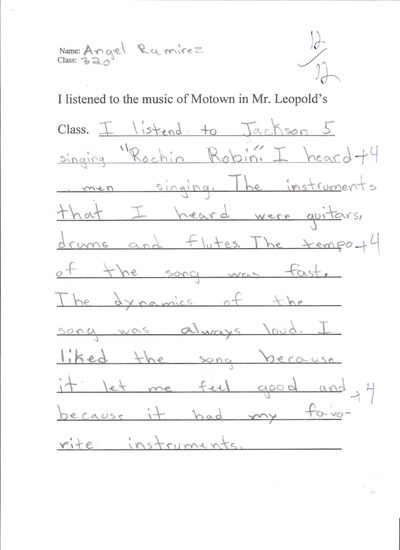 Name: Angel Ramirez
Class: 320
12
12
I listened to the music of Motown in Mr. Leopold's
Class. I listend to Jackson 5
singing "Rochin Robin". I heard +4
men singing. The instruments
that I heard were guitars,
drums and flutes. The tempo +4
of the song was fast.
The dynamics of the
song was always loud. I
liked the song because
it let me feel good and +4
because it had my favo-
rite instruments.